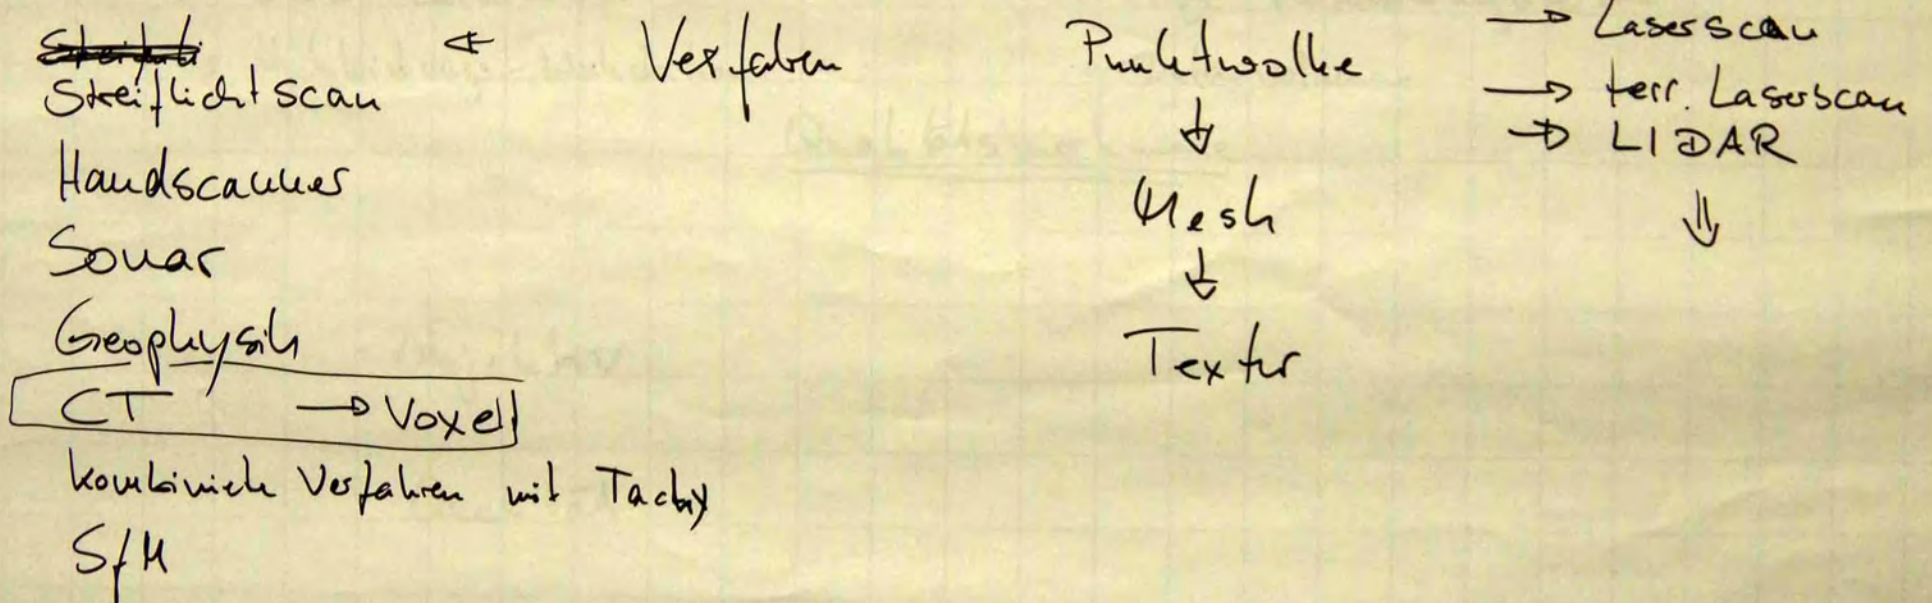 Streiflichtscan
Handscanner
Sonar
Geophysik
CT → Voxel
kombinierte Verfahren mit Tachy
SfM
← Verfahren
Punktwolke
↓
Mesh
↓
Textur
→ Laserscan
→ terr. Laserscan
→ LIDAR
⇓